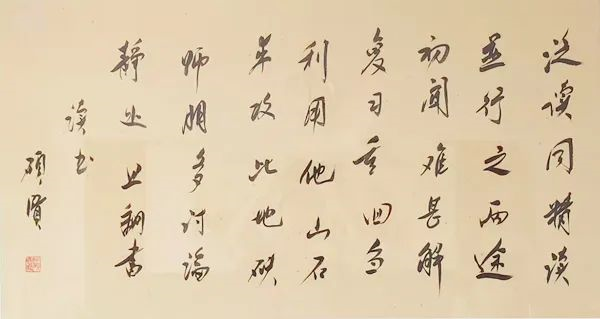 泛读同精读
並行之两途
初闻难甚解
复习重回
利用他山石
来攻此地
师朋多讨论
静处且翻书
读书
硕贤